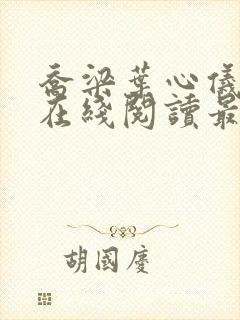 乔梁葉心儀
在綫閱讀最
胡國慶